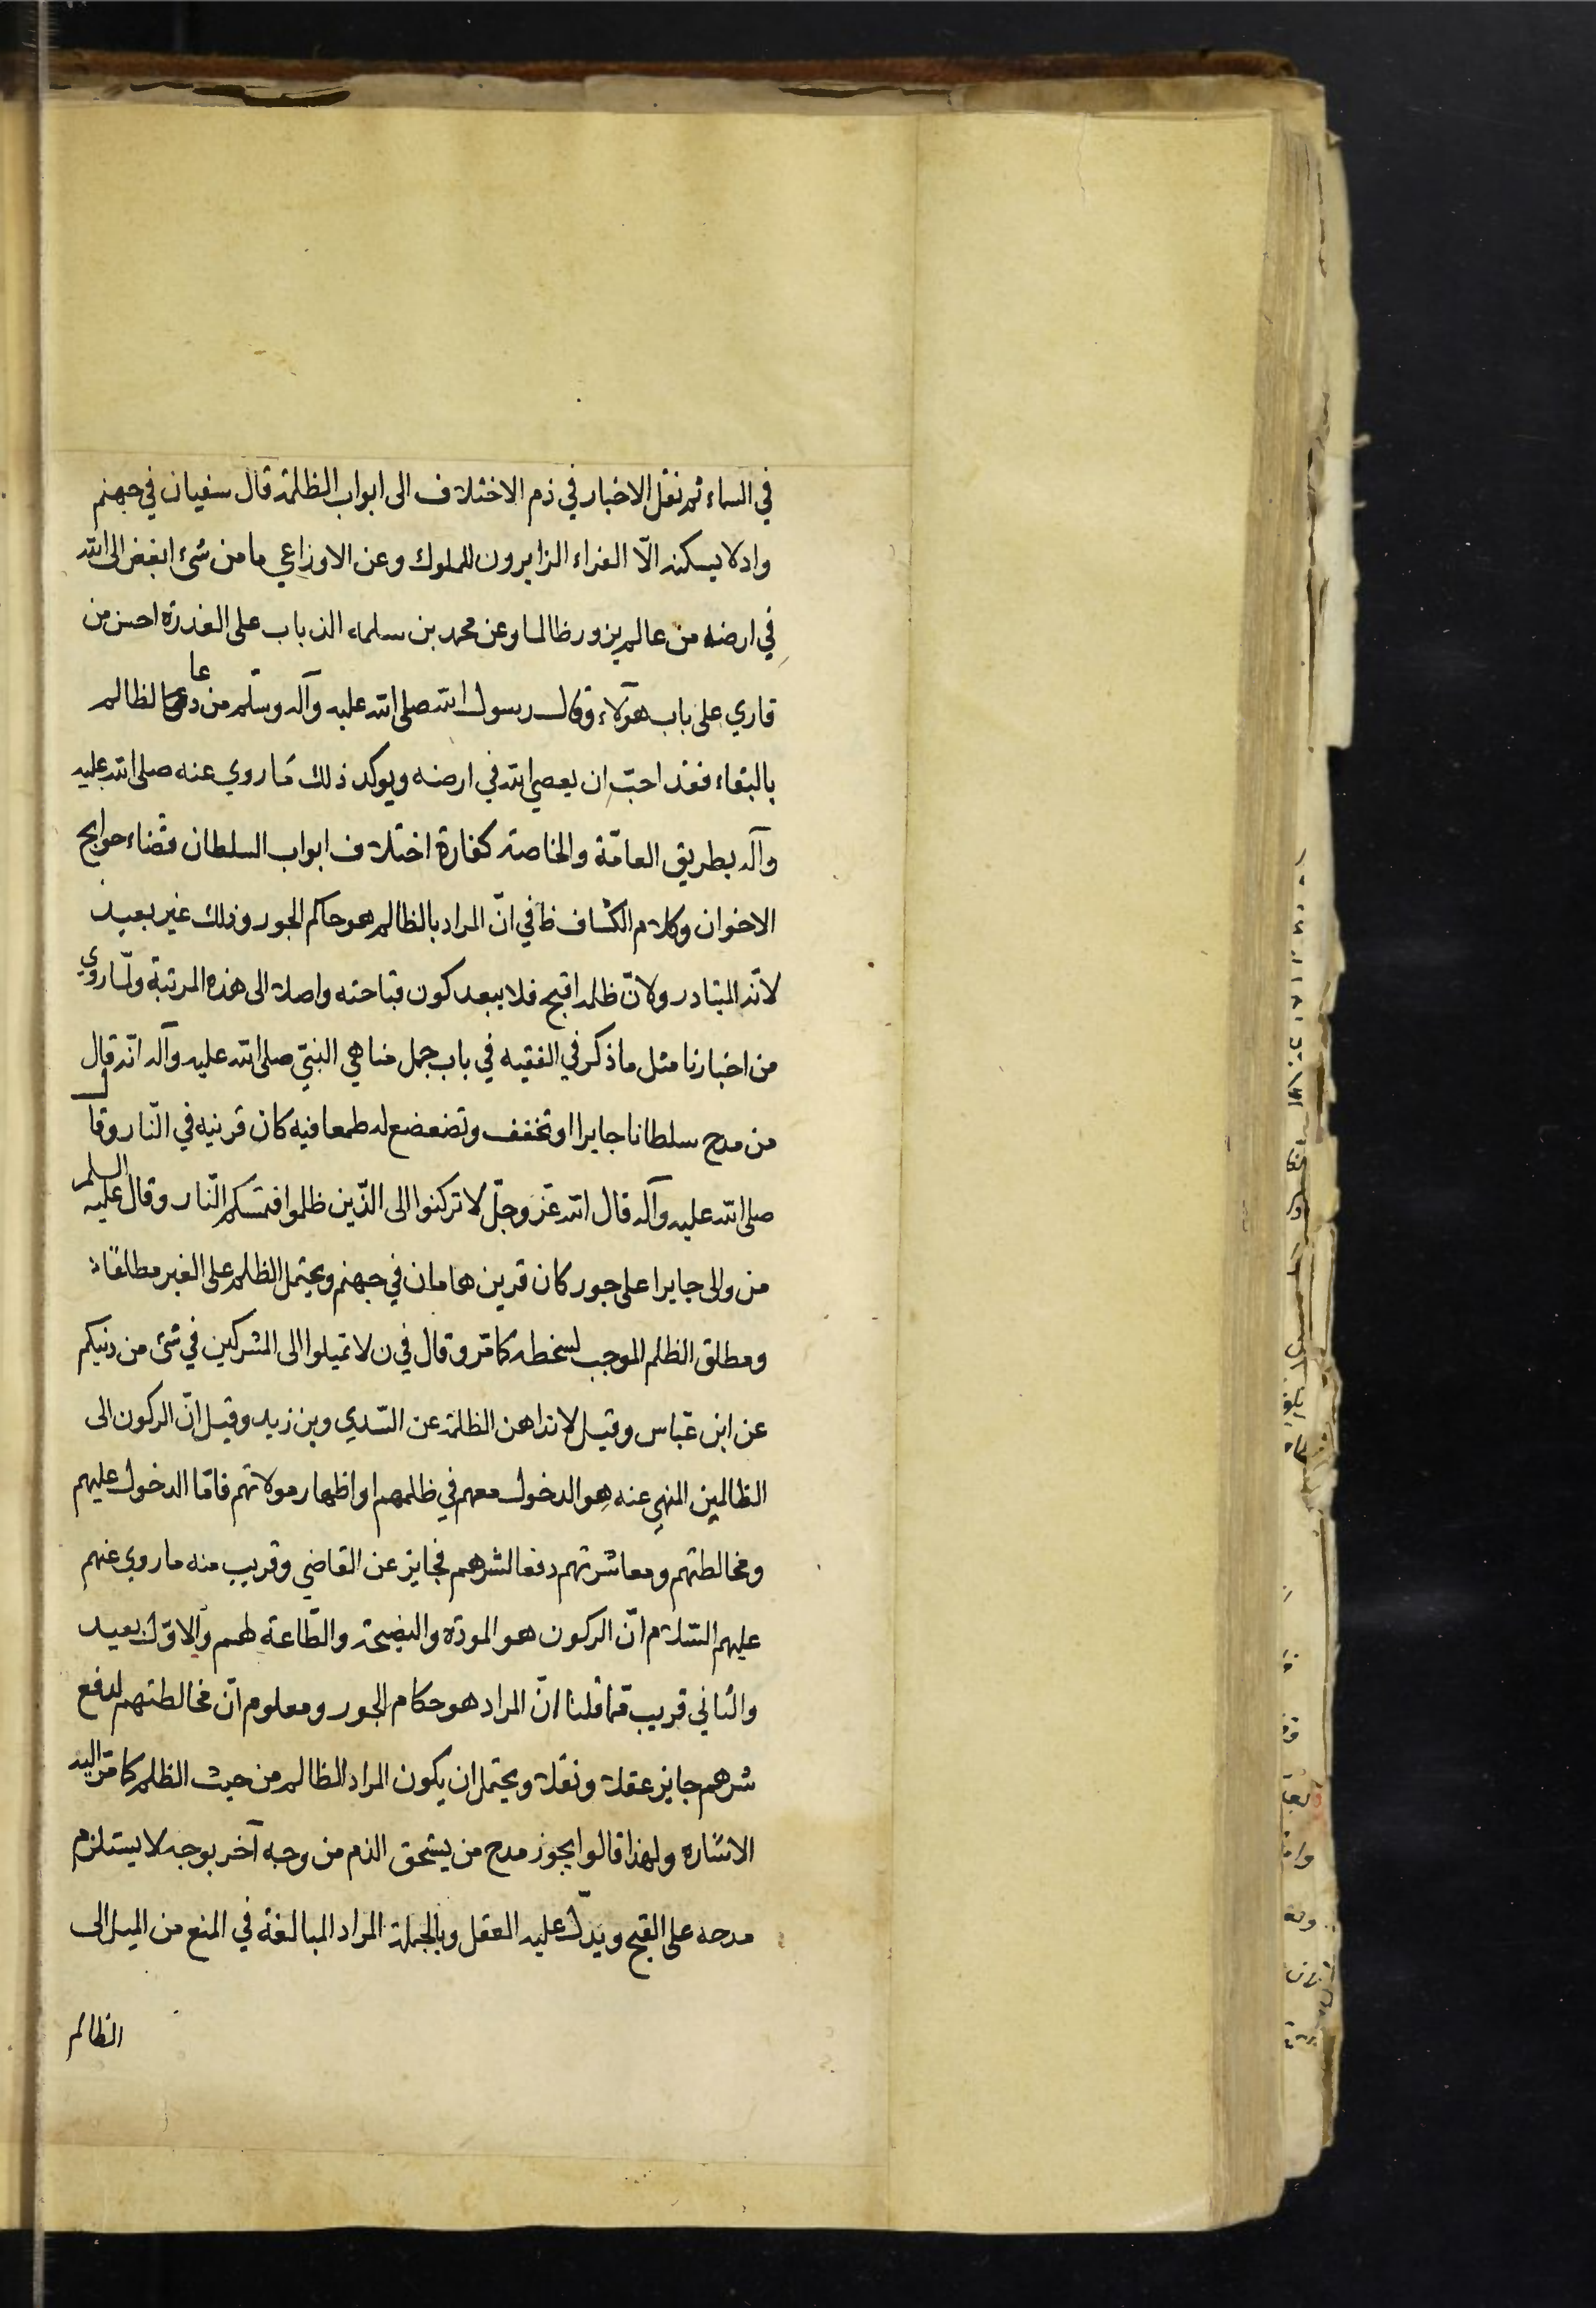 في السماء ثم نقل الاخبار في ذم الاختلاف الى ابواب الظلمة قال سفيان في جهنم
واد لا يسكنه الّا القراء الزايرون للملوك وعن الاوزاعي ما من شئ ابغض الى الله
في ارضه من عالم يزور ظالما وعن محمد بن سلمه الذباب على العذرة احسن من
قاري على باب هؤلاء وقال رسول الله صلى الله عليه وآله وسلّم من دعا لظالم
بالبقاء فقد احبّ ان يعصي الله في ارضه ويوكد ذلك ما روي عنه صلى الله عليه
وآله بطريق العامّة والخاصة كفارة اختلاف ابواب السلطان قضاء حوايج
الاخوان وكلام الكشاف ظ في انّ المراد بالظالم هو حاكم الجور وذلك غير بعيد
لانّه المتبادر ولانّ ظلمه اقبح فلا يبعد كون قباحته واصلة الى هذه المرتبة ولما روي
من اخبارنا مثل ما ذكر في الفقيه في باب جمل مناهي النبيّ صلى الله عليه وآله انّه قال
من مدح سلطانا جايرا او تخفف وتضعضع له طمعا فيه كان قرنيه في النّار وقال
صلى الله عليه وآله قال الله عزّ وجلّ لا تركنوا الى الذّين ظلموا فتمسّكم النّار وقال عليه السلم
من والى جايرا على جور كان قرين هامان في جهنم ويحتمل الظلم على الغير مطلقا
ومطلق الظلم الموجب لسخطه كما مّر وقال في ن لا تميلوا الى المشركين في شئ من دنيكم
عن ابن عبّاس وقيل لا تداهن الظلمة عن السّدي وبن زيد وقيل انّ الركون الى
الظالمين المنهي عنه هو الدخول معهم في ظلمهم او اظهار مولاتهم فامّا الدخول عليهم
ومخالطتهم ومعاشرتهم دفعا لشرهم فجايز عن القاضي وقريب منه ما روي عنهم
عليهم السّلام انّ الركون هو المودّه والنصيحة والطّاعة لهم والاوّل بعيد
والثاني قريب مما قلنا انّ المراد هو حكام الجور ومعلوم انّ مخالطتهم لدفع
شرهم جايز عقلا ونقلا ويحتمل ان يكون المراد الظالم من حيث الظلم كما مرّ اليه
الاشاره ولهذا قالوا يجوز مدح من يستحق الذم من وجه آخر بوجه لا يستلزم
مدحه على القبح ويدلّ عليه العقل وبالجملة المراد المبالغة في المنع من الميل الى
الظالم